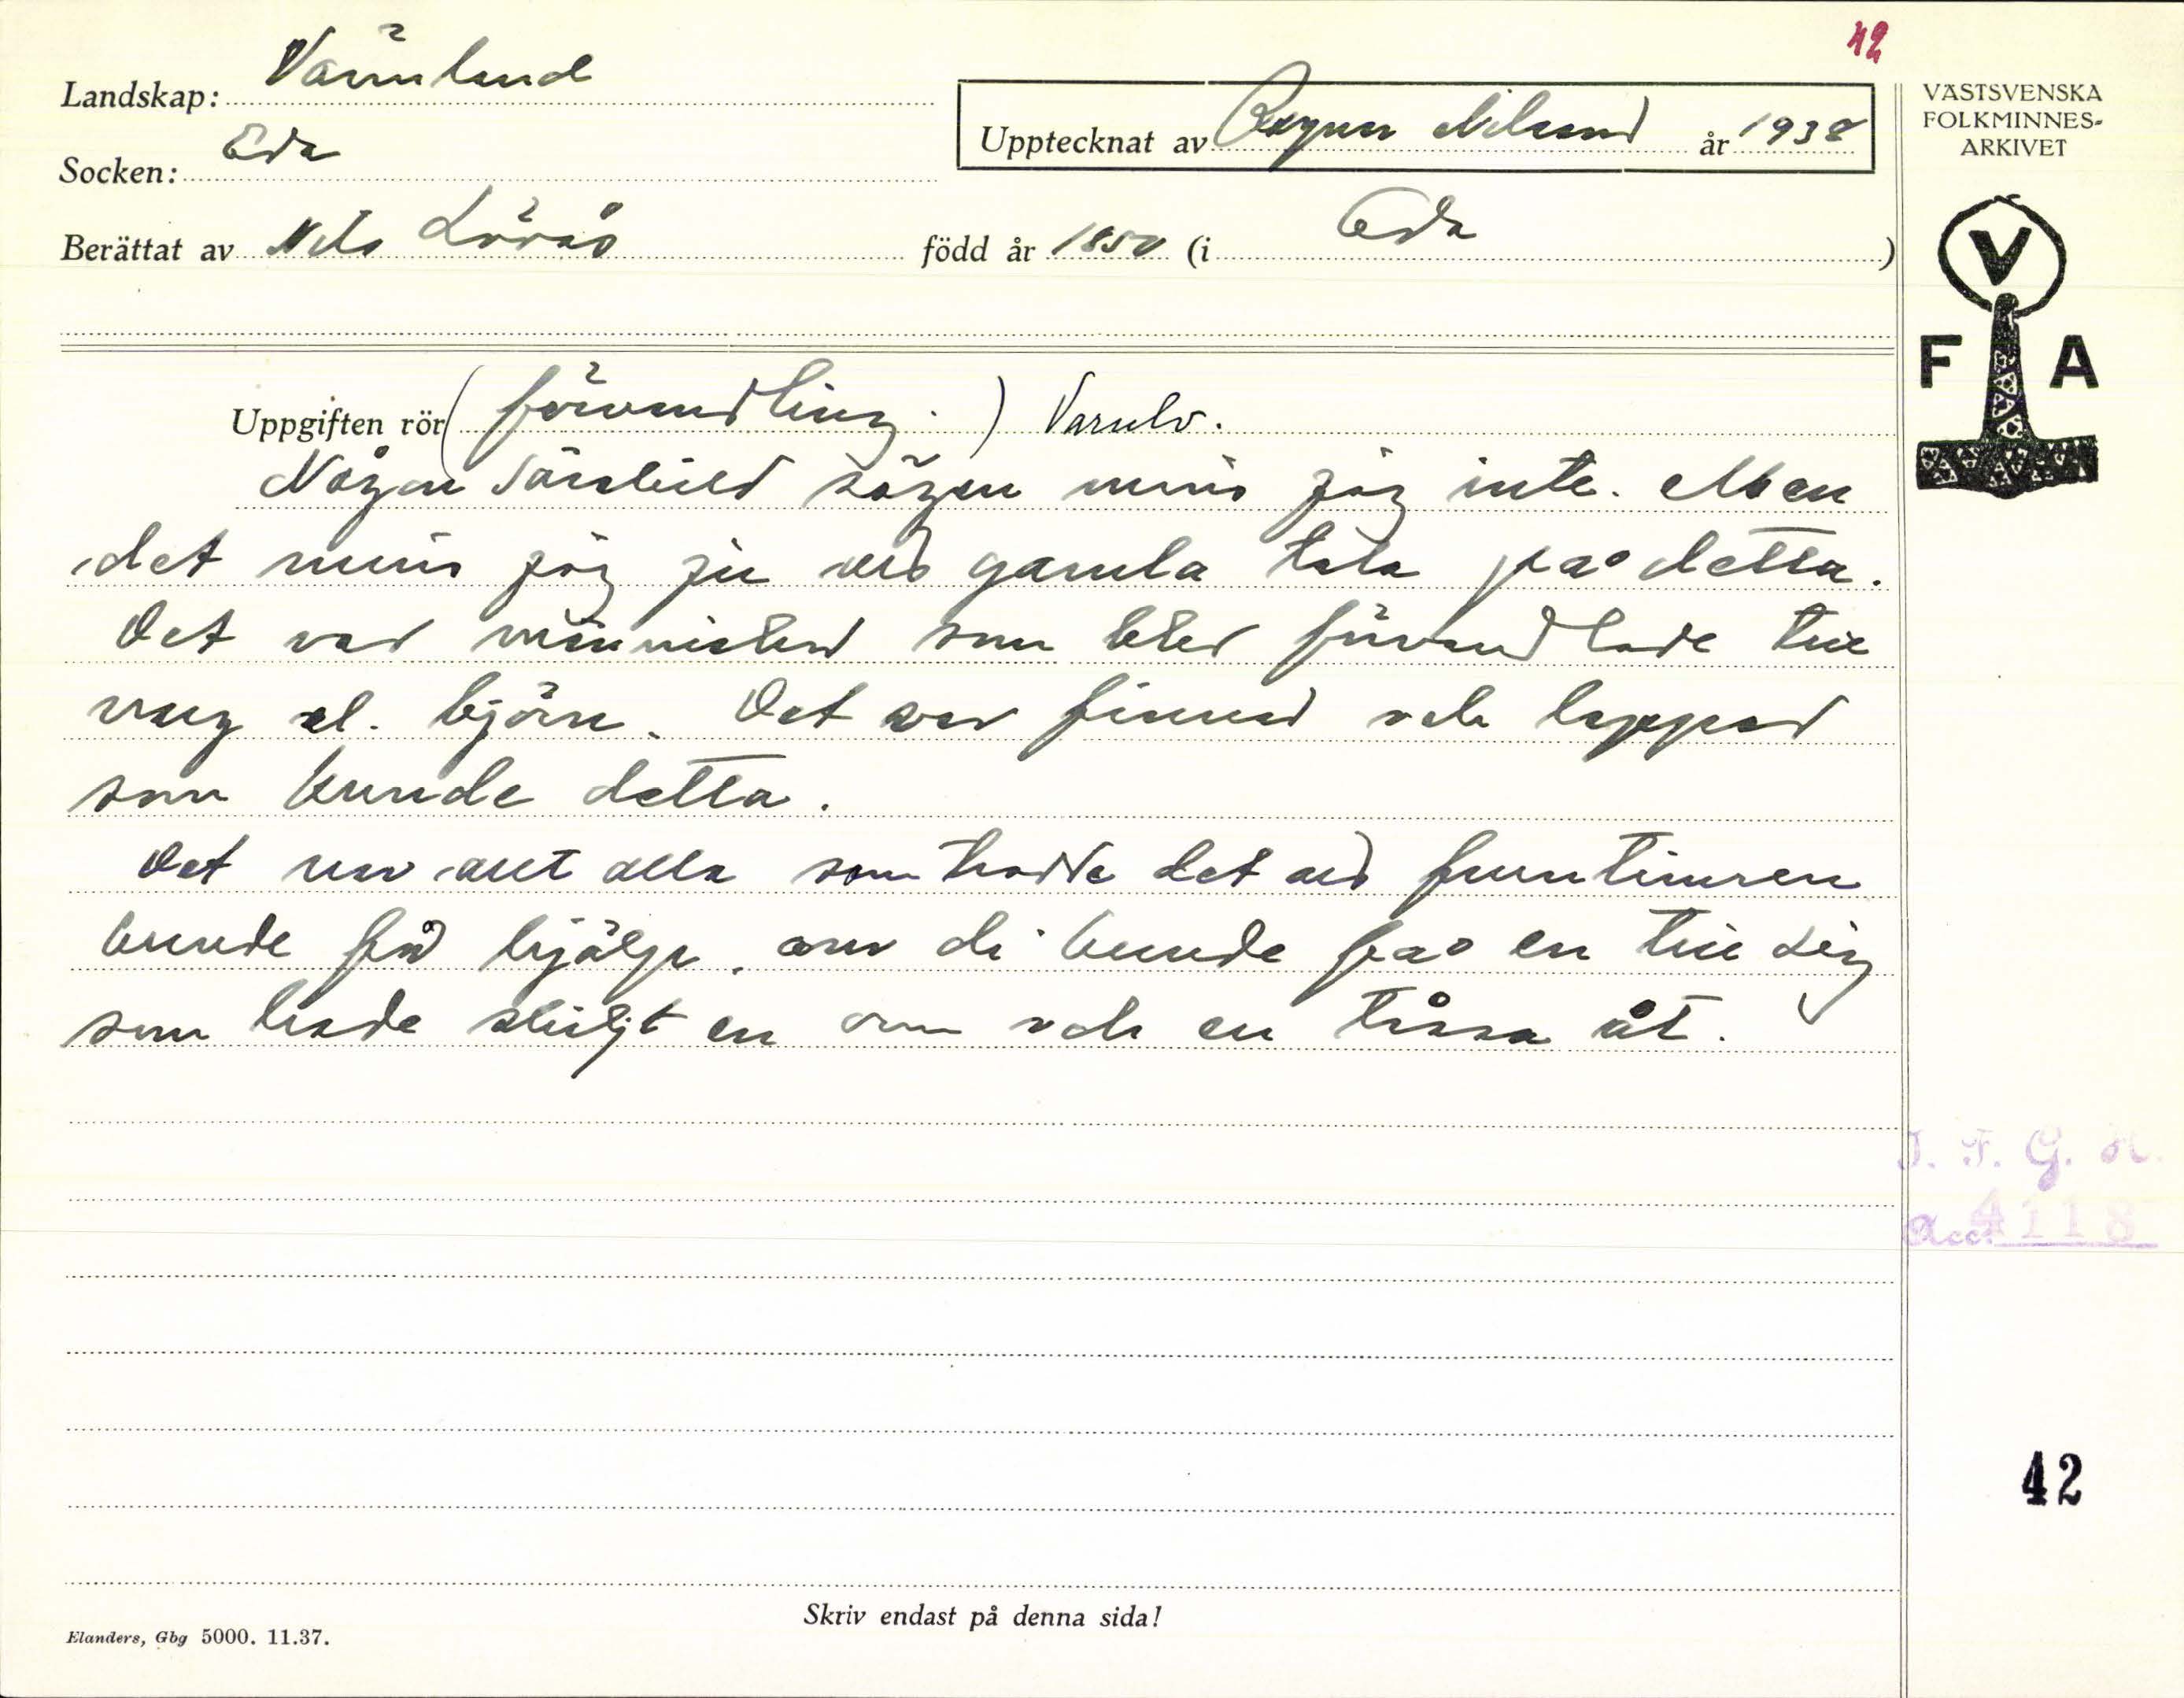 42
Landskap: Värmland
Upptecknat av Ragnar Nilsson år 1938
VÄSTSVENSKA
FOLKMINNES-
ARKIVET
Socken: Eda
Berättat av Nils Lövås född år 1850 (i Eda )
V
F A
Uppgiften rör (förvandling.) Varulv.
Någon särskild sägen minns jäg inte. Men
det minns jäg ju att gamla tala på detta.
Det var människer som blev förvandlade till
varg el. björn. Det var finnar och lappar
som kunde detta.
Det var allt alla som trodde det att fruntimren
kunde få hjälp, om di kunde få en till sig
som hade i en om och en åt.
I. F. G. H.
Acc. 4118
42
Skriv endast på denna sida!
Elanders, Gbg 5000. 11.37.